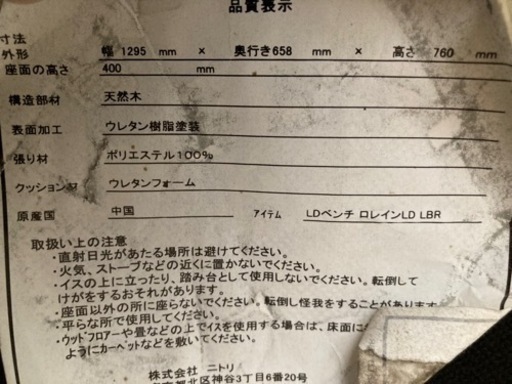 品質表示
寸法
外形 幅 1295 mm × 奥行き658 mm × 高さ 760 mm
座面の高さ 400 mm
構造部材 天然木
表面加工 ウレタン樹脂塗装
張り材 ポリエステル100%
クッション材 ウレタンフォーム
原産国 中国 アイテム LDベンチ ロレインLD LBR
取扱い上の注意
・直射日光があたる場所は避けてください。
・火気、ストーブなどの近くに置かないでください。
・イスの上に立ったり、踏み台として使用しないでください。転倒して
けがをするおそれがあります。
・座面以外の所に座らないでください。転倒し怪我をすることがあります
・平らな所で使用してください。
・ウッドフロアーや畳などの上でイスを使用する場合は、床面に
ようにカーペットなどを敷いてください。
株式会社 ニトリ
北区神谷3丁目6番20号